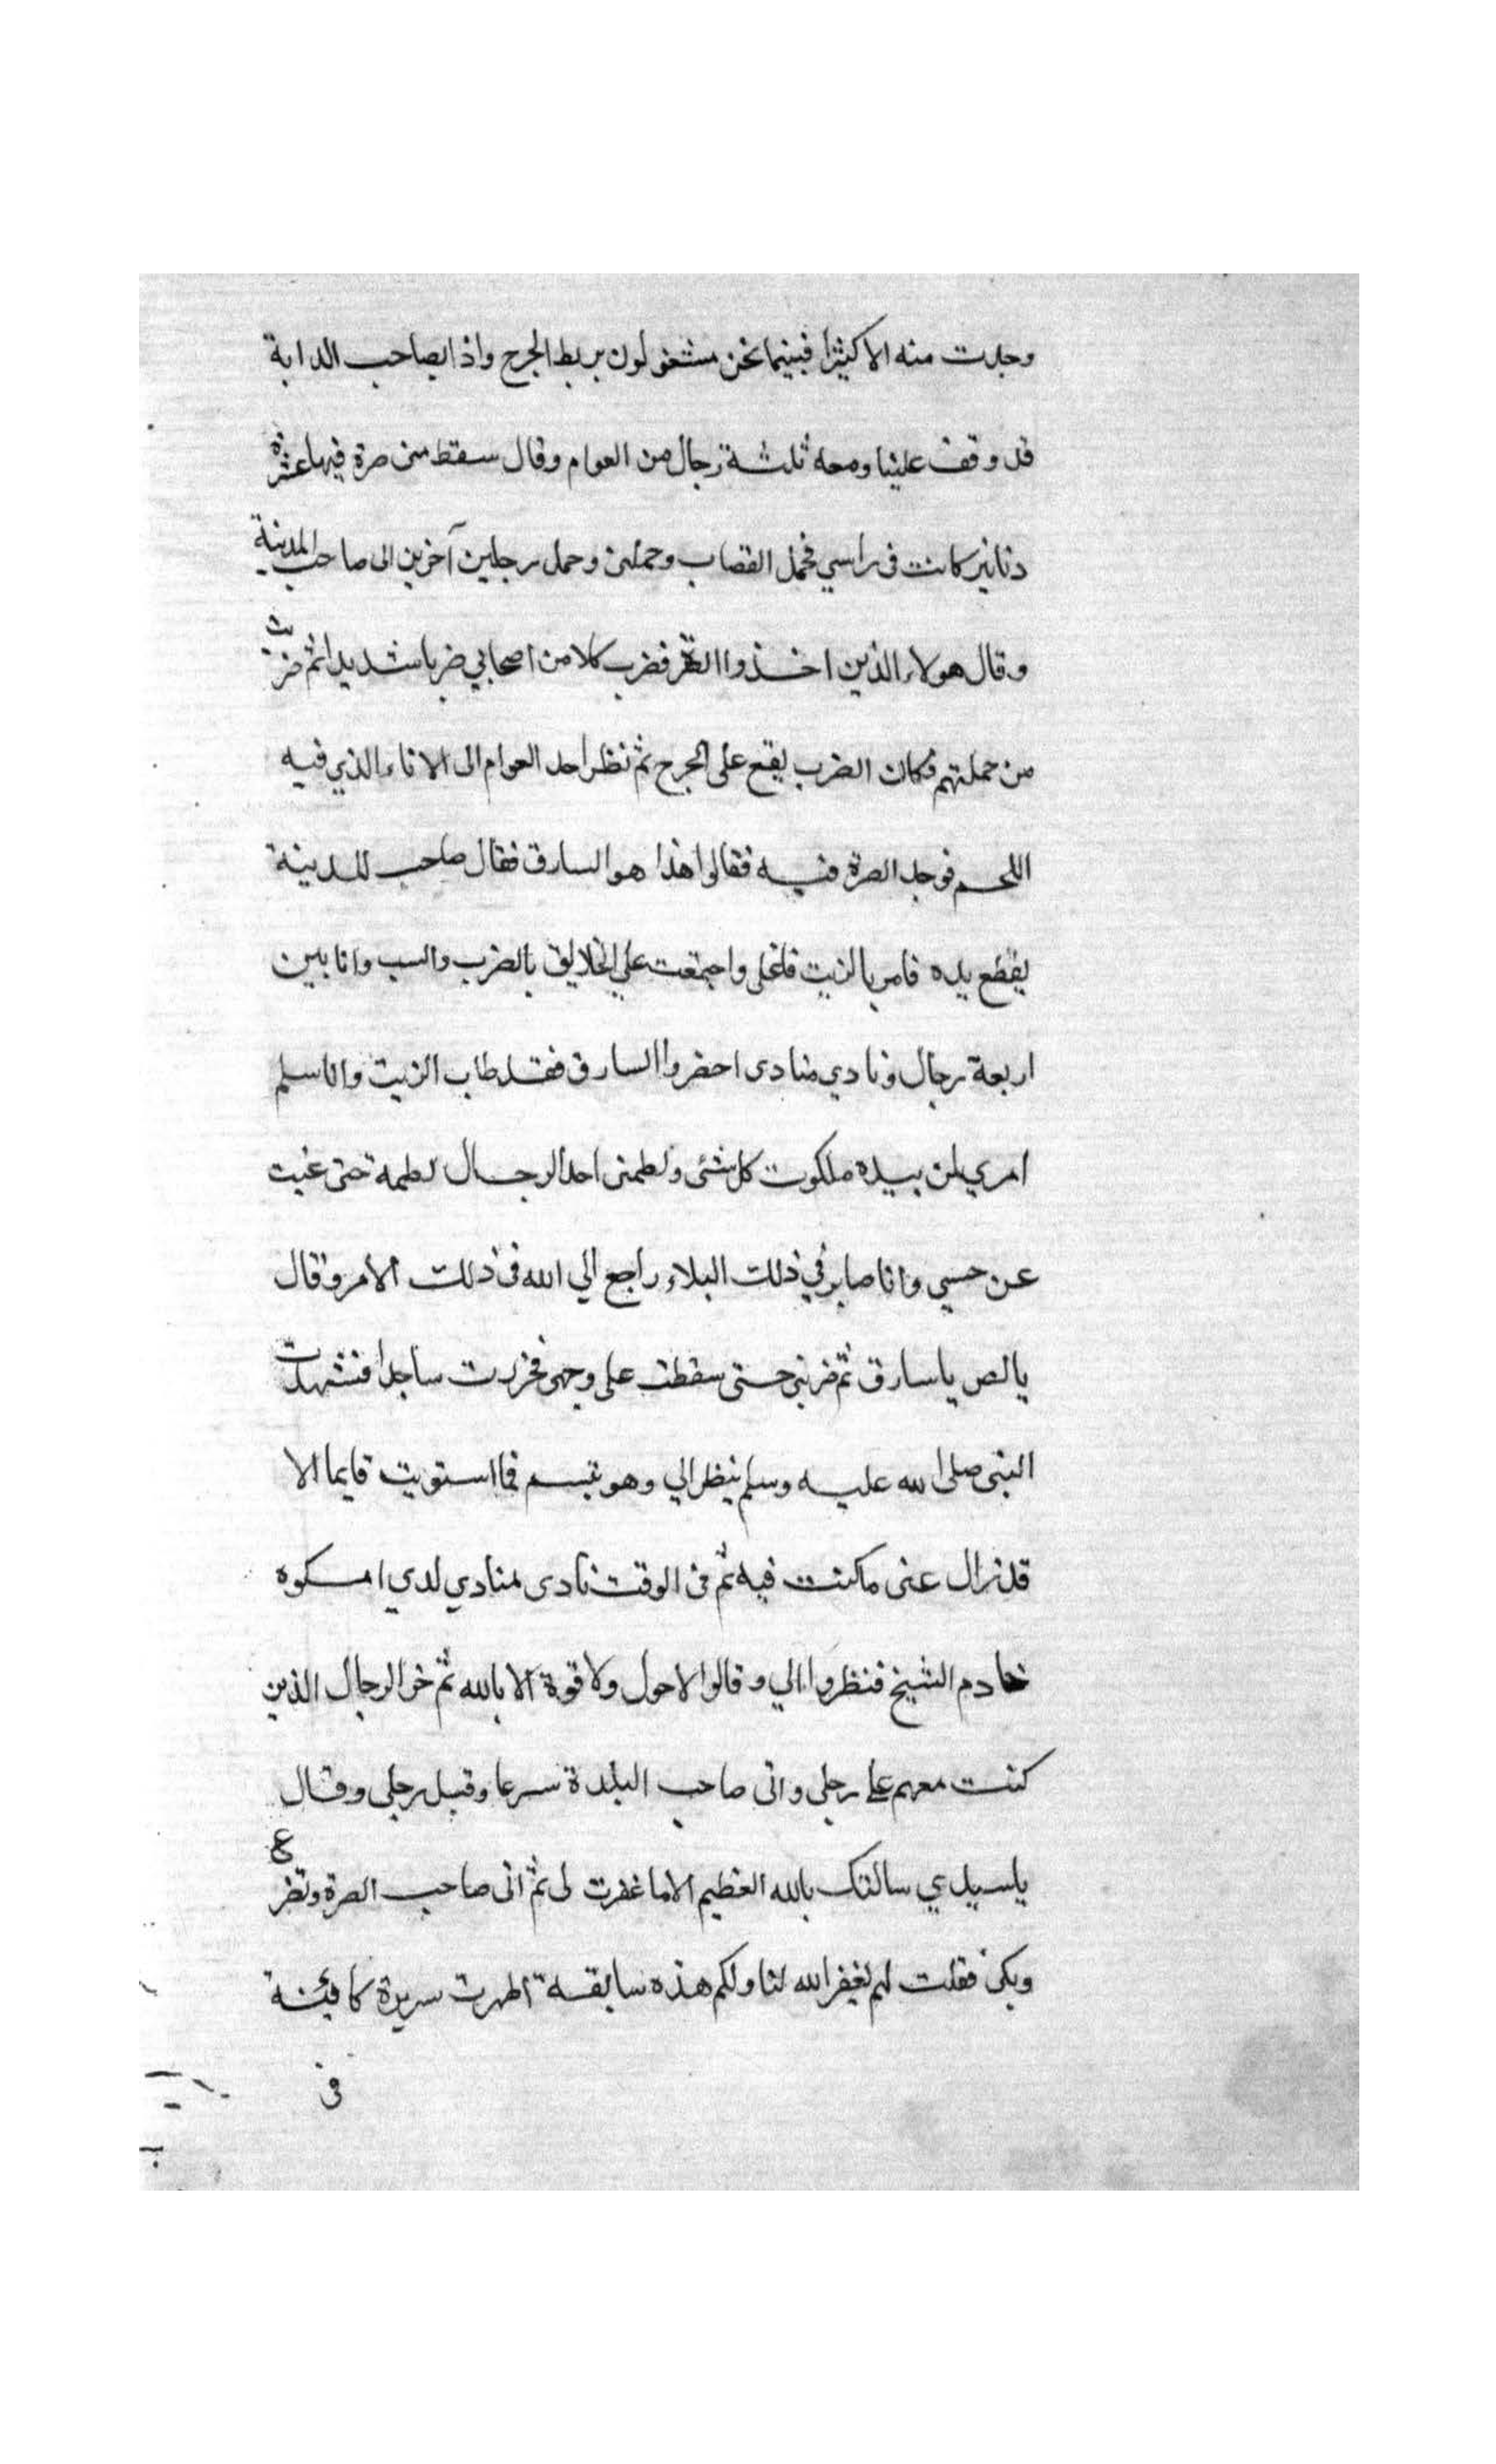 وجدت منه الا كثيرا فبينما نحن مشتغولون بربط الجرح واذا بصاحب الدابة
قد وقف علينا ومعه ثلثة رجال من العوام وقال سقط منى صرة فيها عشرة
دنانير كانت فى راسي فحمل القصاب وحملنى وحمل رجلين آخرين الى صاحب المدينة
وقال هولاء الذين اخذوا الصرة فضرب كلا من اصحابي ضربا شديدا ثم ضربت
من جملتهم فكان الضرب يقع على الجرح ثم نظر احد العوام الى الاناء الذي فيه
اللحم فوجد الصرة فيه فقالوا هذا هو السارق فقال صاحب المدينة
يقطع يده فامر بالزيت فاغلى واجتمعت علي الخلايق بالضرب والسب وانا بين
اربعة رجال ونادي منادى احضروا السارق فقد طاب الزيت وانا سلم
امري لمن بيده ملكوت كل شئى ولطمنى احد الرجال لطمة حتى غبت
عن حسي وانا صابر في ذلك البلاء راجع الي الله فى ذلك الامر وقال
يالص ياسارق ثم ضربنى حتى سقطت على وجهى فخررت ساجدا فشهدت
النبى صلى الله عليه وسلم ينظر الي وهو تبسم فما استويت قايما الا
قد زال عنى ما كنت فيه ثم فى الوقت نادى منادي لدي امسكوه
خادم الشيخ فنظروا الي وقالوا لا حول ولا قوة الا بالله ثم خر الرجال الذين
كنت معهم على رجلى واتى صاحب البلدة سرعا وقبل رجلى وقال
ياسيدي سالتك بالله العظيم الا ما غفرت لى ثم اتى صاحب الصرة وتضرع
وبكى فقلت لهم يغفر الله لنا ولكم هذه سابقة اظهرت سريرة كافئة
فى